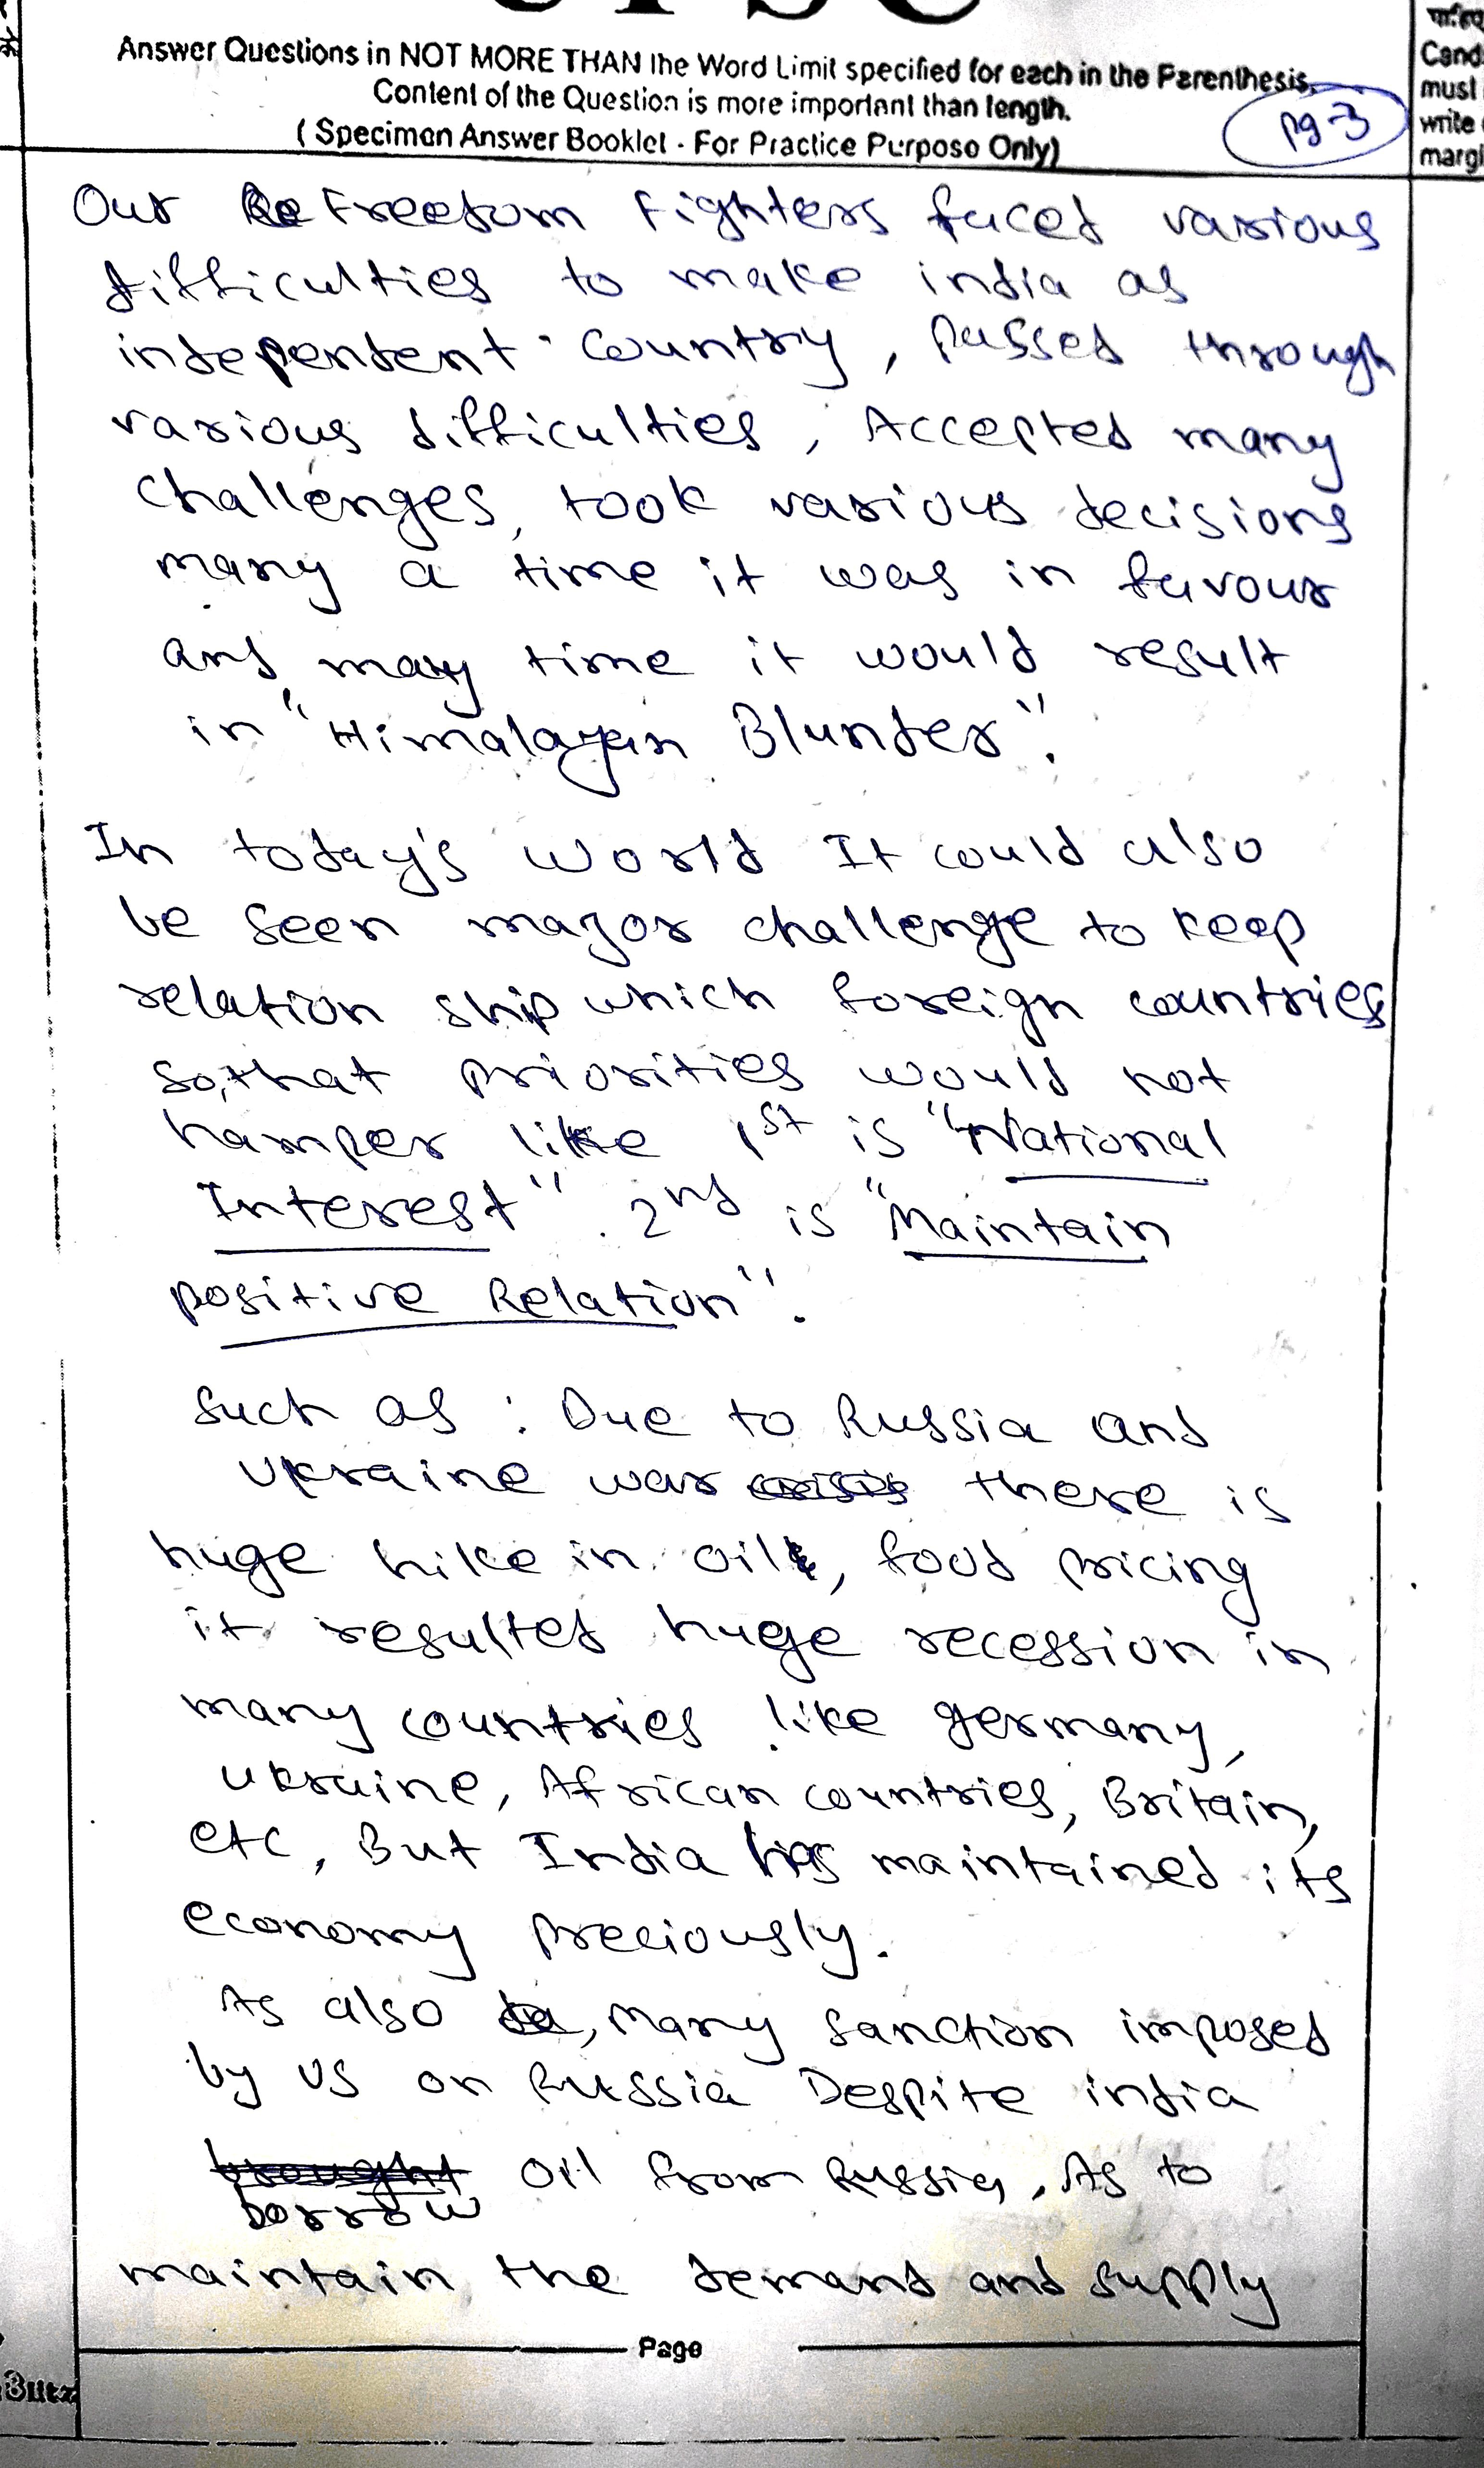 UPSC
Answer Questions in NOT MORE THAN the Word Limit specified for each in the Parenthesis.
Content of the Question is more important than length.
( Specimen Answer Booklet - For Practice Purpose Only)
pg-3
Cand
must
write
margi
Our Freedom Fighters faced various
difficulties to make india as
independent country, passed through
various difficulties, Accepted many
challenges, took various decisions
many a time it was in favour
and many time it would result
in "Himalayan Blunder".
In today's world It could also
be seen major challenge to keep
relation ship which foreign countries
so, that priorities would not
hamper like 1st is "National
Interest". 2nd is "Maintain
positive Relation".
Such as : Due to Russia and
Ukraine war there is
huge hike in oil, food pricing
it resulted huge recession in
many countries like germany,
ukraine, African countries, Britain,
etc, But India has maintained its
economy preciously.
As also, many sanction imposed
by US on Russia Despite india
borrow oil from Russia, As to
maintain the demand and supply
Page